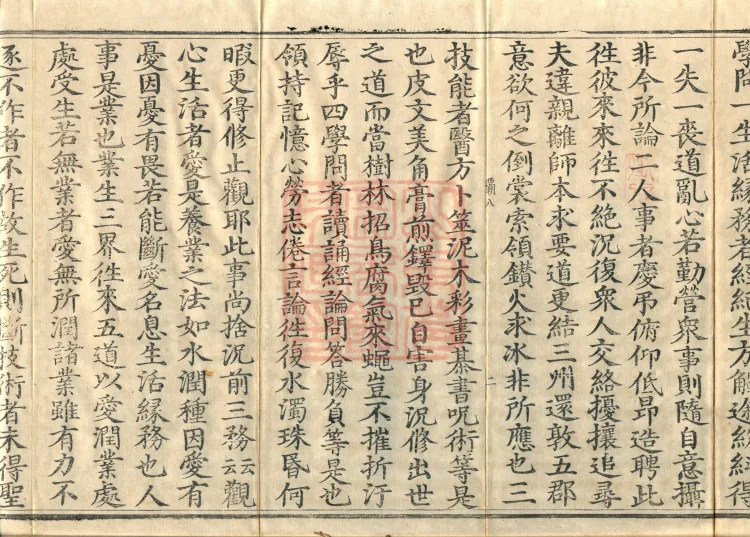 學問一生活緣務者經紀生方觸途紛糾得
一失一喪道亂心若勤營衆事則隨自意攝
非今所論二人事者慶弔俯仰低昂造聘此
往彼來來往不絕況復衆人交絡擾攘追尋
夫違親離師本求要道更結三州還敦五郡
意欲何之倒裳索領鑽火求冰非所應也三
技能者醫方卜筮泥木彩畫棊書呪術等是
也皮文美角膏煎鐸毀已自害身況修出世
之道而當樹林招鳥腐氣來蠅豈不摧折汙
辱乎四學問者讀誦經論問答勝負等是也
領持記憶心勞志倦言論往復水濁珠昏何
暇更得修止觀耶此事尚捨況前三務云云觀
心生活者愛是養業之法如水潤種因愛有
憂因憂有畏若能斷愛名息生活緣務也人
事是業也業生三界往來五道以愛潤業處
處受生若無業者愛無所潤諸業雖有力不
逐不作者不作故生死則斷技術者未得聖